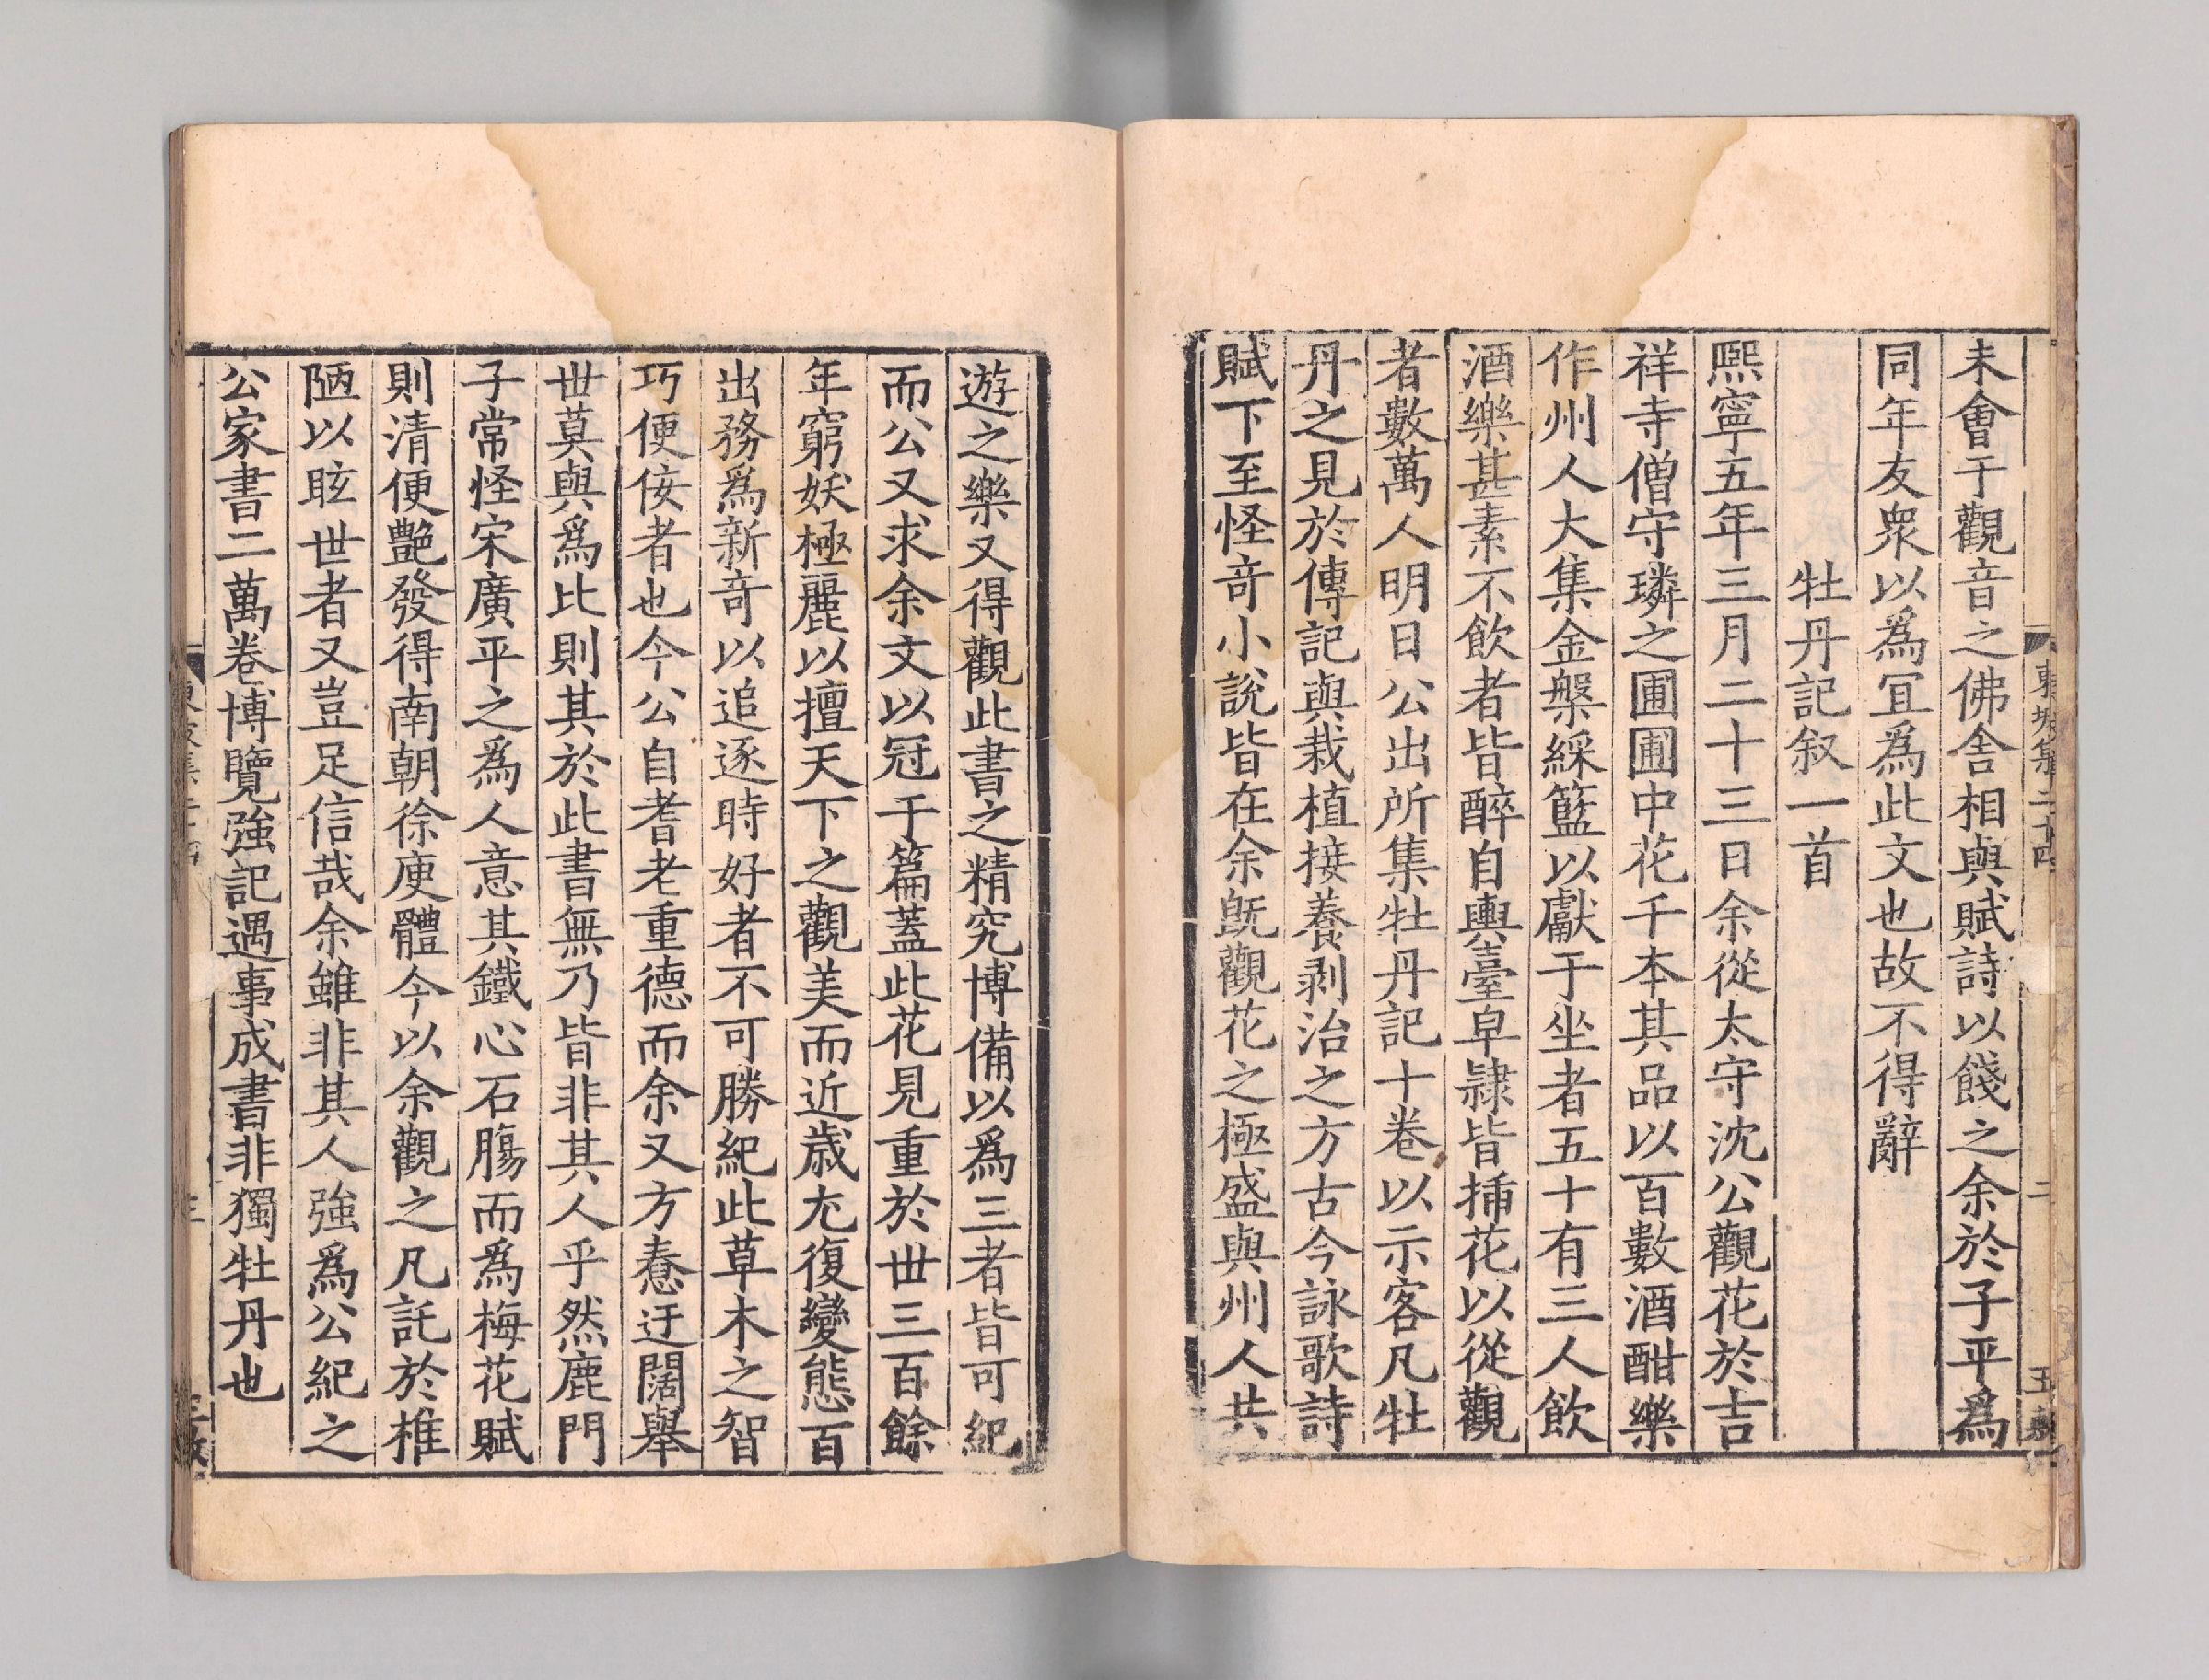 未會于觀音之佛舎相與賦詩以餞之余於子平爲
同年友衆以爲冝爲此文也故不得辭
牡丹記叙一首
熈寧五年三月二十三日余從太守沈公觀花於吉
祥寺僧守璘之圃圃中花千本其品以百數酒酣樂
作州人大集金槃綵籃以獻于坐者五十有三人飲
酒樂甚素不飲者皆醉自輿臺皁隷皆挿花以從觀
者數萬人明日公出所集牡丹記十卷以示客凡牡
丹之見於傳記與栽植接養剥治之方古今詠歌詩
賦下至怪竒小說皆在余旣觀花之極盛與州人共
遊之樂又得觀此書之精究博備以爲三者皆可紀
而公又求余文以冠于篇蓋此花見重於世三百餘
年窮妖極麗以擅天下之觀美而近歳尢復變態百
出務爲新竒以追逐時好者不可勝紀此草木之智
巧便佞者也今公自耆老重德而余又方惷迂闊舉
世莫與爲比則其於此書無乃皆非其人乎然鹿門
子常怪宋廣平之爲人意其鐵心石膓而爲梅花賦
則清便艶發得南朝徐庾體今以余觀之凡託於椎
陋以眩世者又豈足信哉余雖非其人強爲公紀之
公家書二萬卷博覽強記遇事成書非獨牡丹也
東坡集二十四
二
三